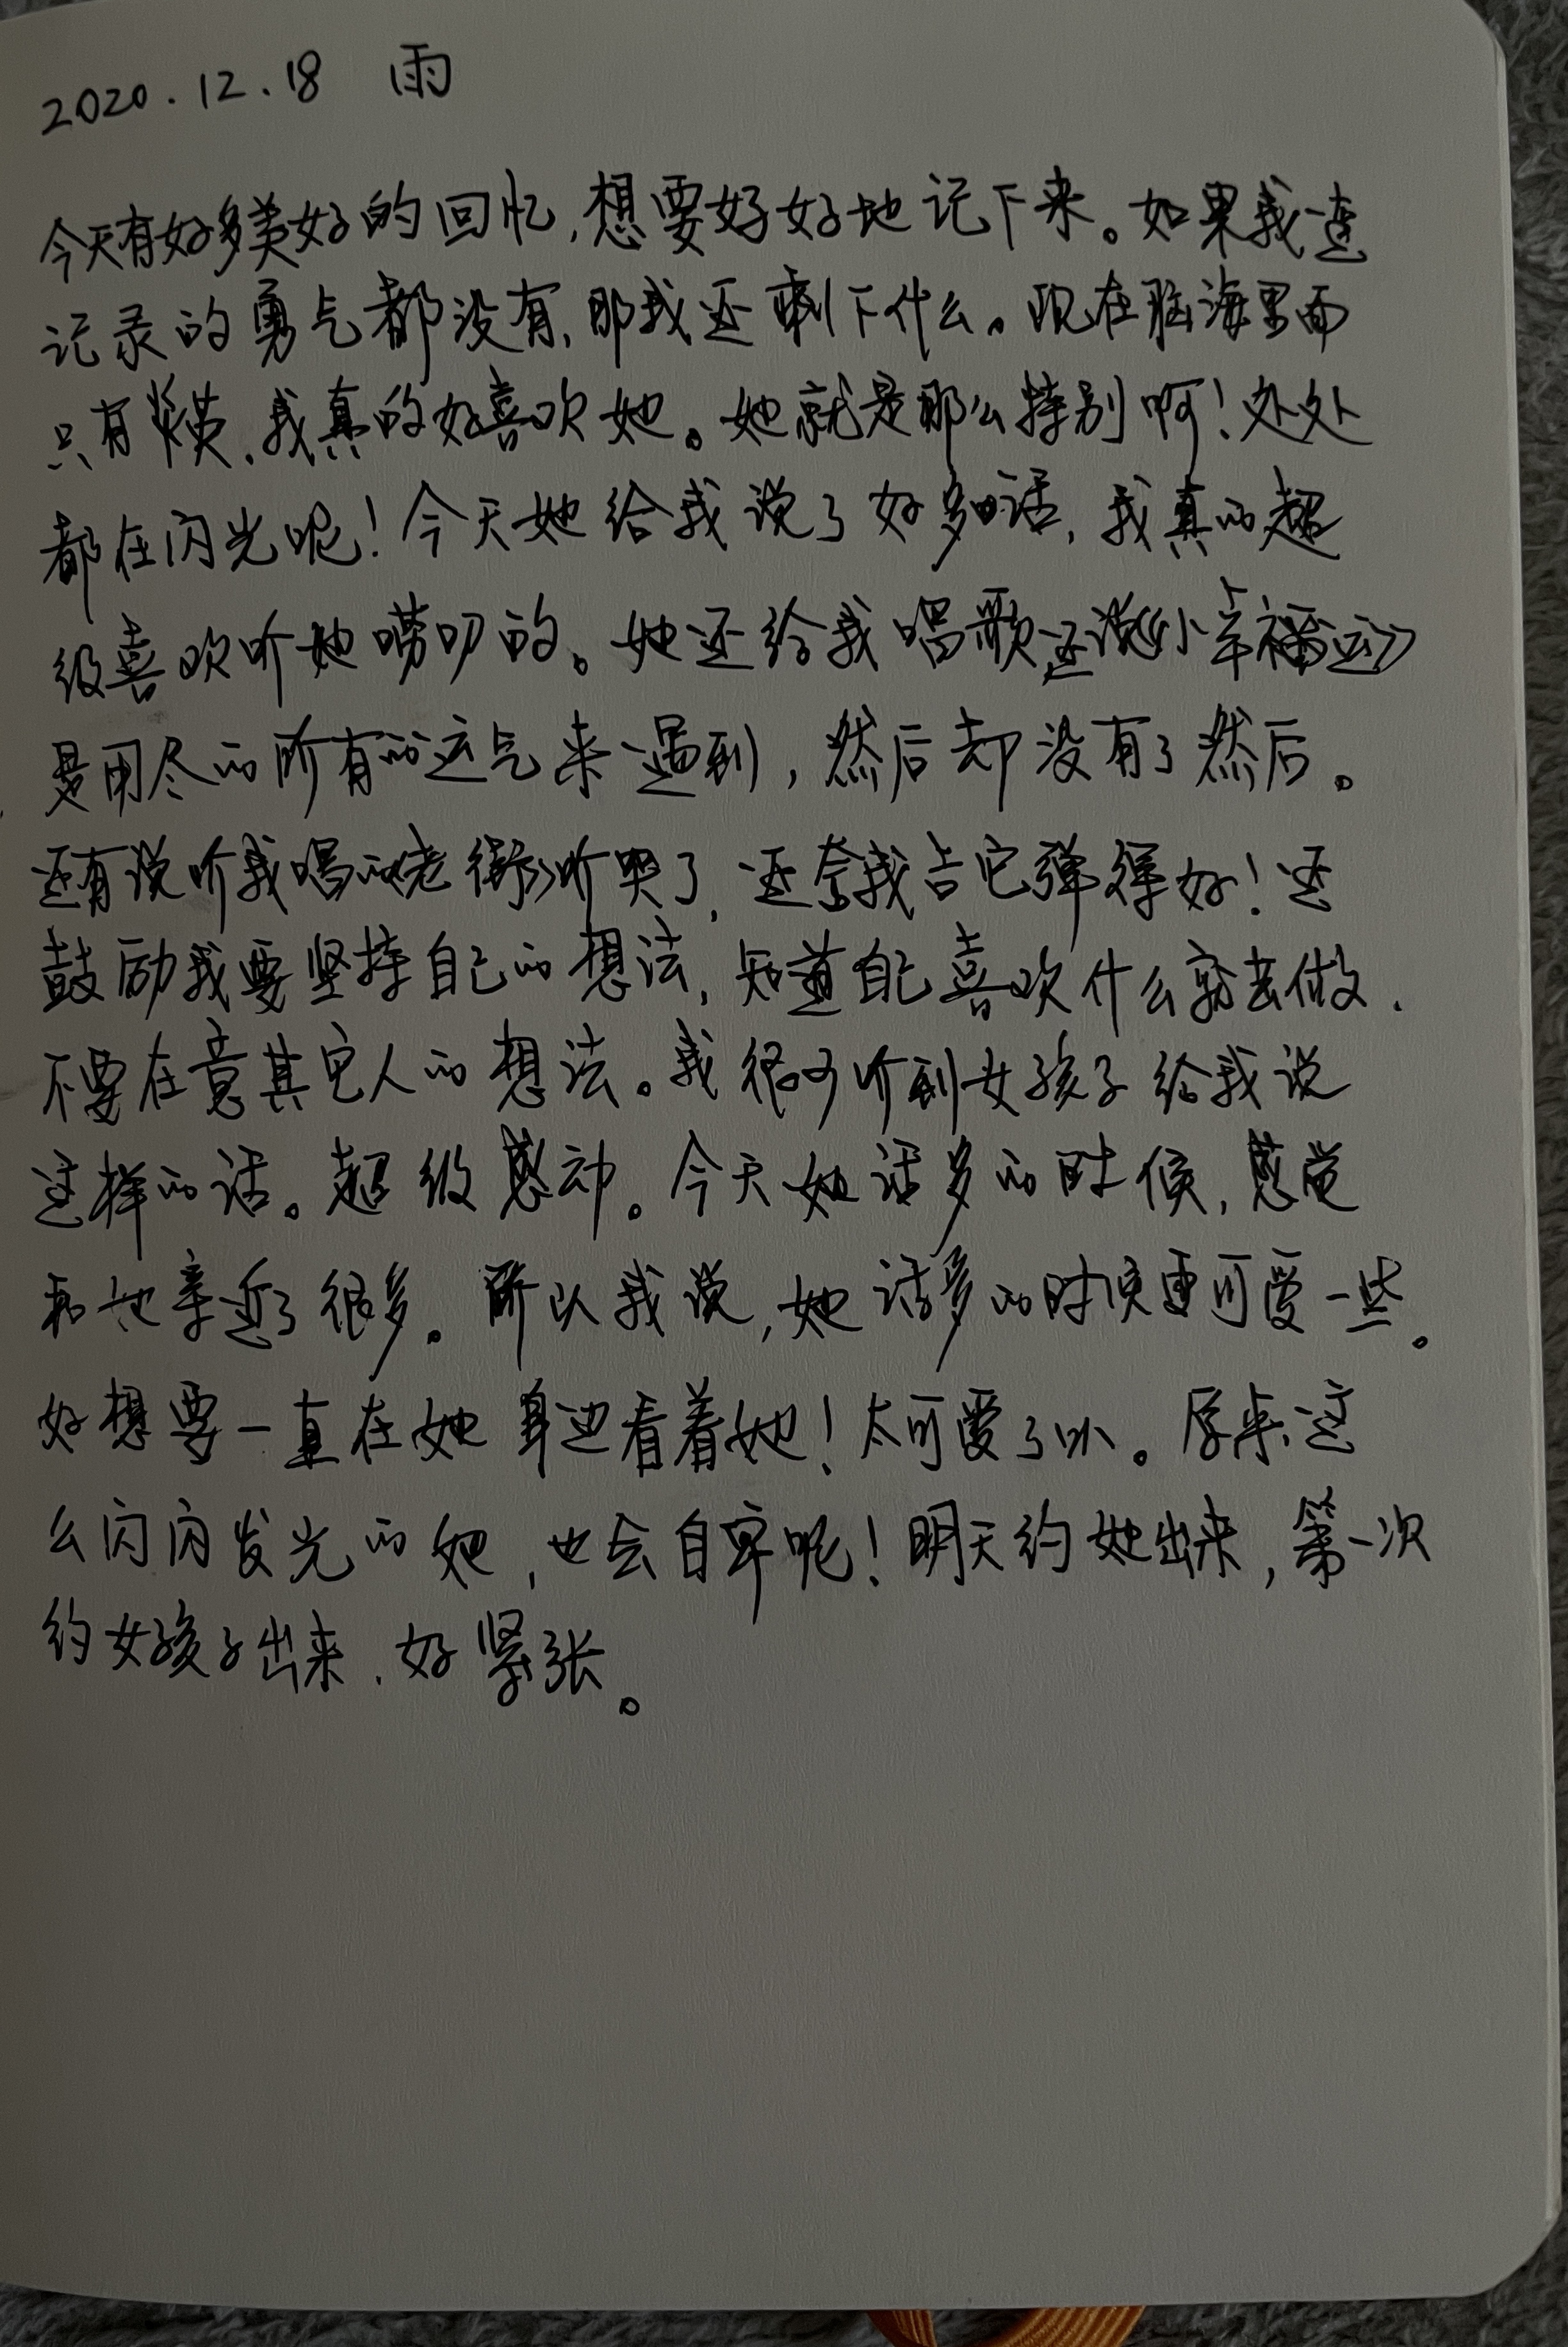 2020.12.18 雨
今天有好多美好的回忆,想要好好地记下来。如果我连
记录的勇气都没有,那我还剩下什么。现在脑海里面
只有,我真的好喜欢她。她就是那么特别啊!处处
都在闪光呢!今天她给我说了好多话,我真的超
级喜欢听她唠叨的。她还给我唱歌还说《小幸运》
是用尽的所有的运气来遇到,然后却没有了然后。
还有说听我唱的《老街》听哭了,还夸我吉它弹得好!还
鼓励我要坚持自己的想法,知道自己喜欢什么就去做.
不要在意其它人的想法。我很少听到女孩子给我说
这样的话。超级感动。今天她话多的时候,感觉
和她亲近了很多。所以我说,她话多的时候更可爱一些。
好想要一直在她身边看着她!太可爱了叭。原来这
么闪闪发光的她,也会自卑呢!明天约她出来,第一次
约女孩子出来,好紧张。